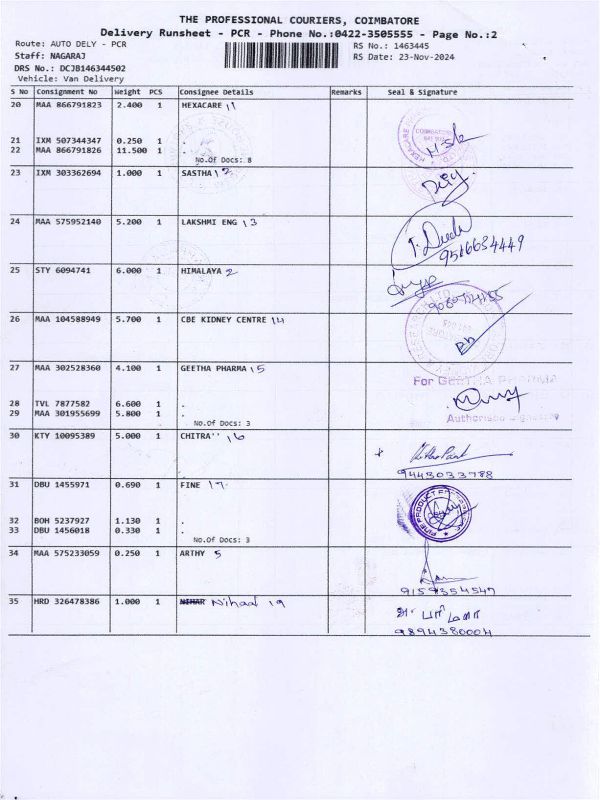 THE PROFESSIONAL COURIERS, COIMBATORE
Delivery Runsheet - PCR - Phone No.:0422-3505555 - Page No.:2
Route: AUTO DELY - PCR RS No.: 1463445
Staff: NAGARAJ RS Date: 23-Nov-2024
DRS No.: DCJB146344502
Vehicle: Van Delivery
S No Consignment No Weight PCS Consignee Details Remarks Seal & Signature
20 MAA 866791823 2.400 1 HEXACARE 11
21 IXM 507344347 0.250 1 .
22 MAA 866791826 11.500 1 .
No.Of Docs: 8
23 IXM 303362694 1.000 1 SASTHA 12
24 MAA 575952140 5.200 1 LAKSHMI ENG 13
9516634449
25 STY 6094741 6.000 1 HIMALAYA 2
26 MAA 104588949 5.700 1 CBE KIDNEY CENTRE 14
27 MAA 302528360 4.100 1 GEETHA PHARMA 15
For GEETHA PHARMA
28 TVL 7877582 6.600 1 .
29 MAA 301955699 5.800 1 .
Authorised
No.Of Docs: 3
30 KTY 10095389 5.000 1 CHITRA 16
9443033788
31 DBU 1455971 0.690 1 FINE 17
32 BOH 5237927 1.130 1 .
33 DBU 1456018 0.330 1 .
No.Of Docs: 3
34 MAA 575233059 0.250 1 ARTHY 5
9159354547
35 HRD 326478386 1.000 1 NIHAR Nihaal 19
9894380004